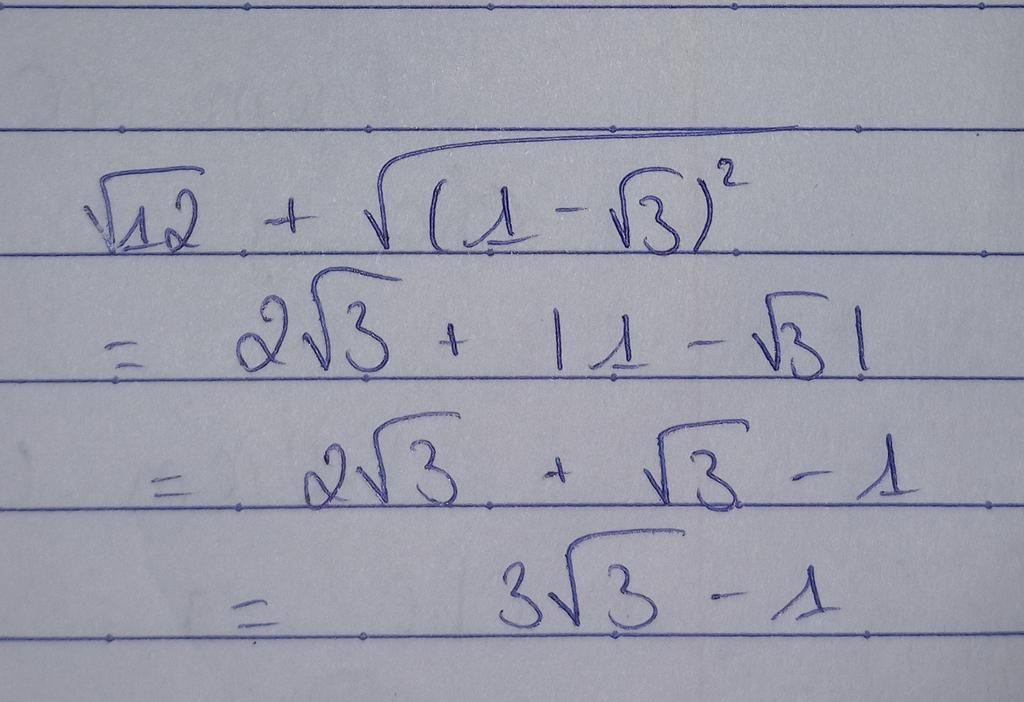 √12 + √(1 - √3)²
= 2√3 + |1 - √3|
= 2√3 + √3 - 1
= 3√3 - 1